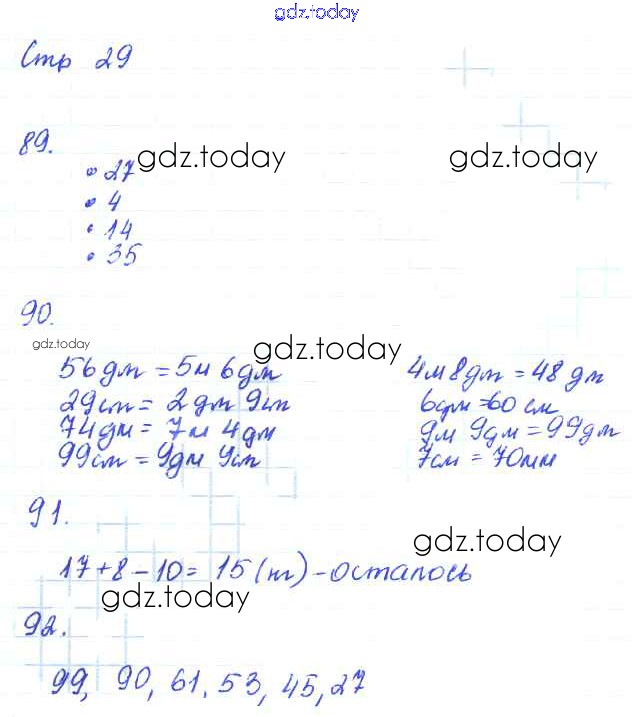 gdz.today
Стр 29
89.
gdz.today gdz.today
• 27
• 4
• 14
• 35
90.
gdz.today gdz.today
56 дм = 5м 6 дм 4м 8 дм = 48 дм
29 см = 2 дм 9 см 6 дм = 60 см
74 дм = 7м 4 дм 9м 9 дм = 99 дм
99 см = 9 дм 9 см 7 см = 70 мм
91.
gdz.today
17 + 8 - 10 = 15 (кг) - осталось
gdz.today
92.
99, 90, 61. 53, 45, 27